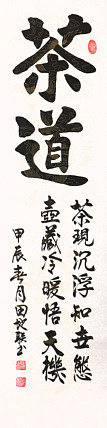 茶道
茶現沉浮知世態
壺藏冷暖悟天機
甲辰春月田